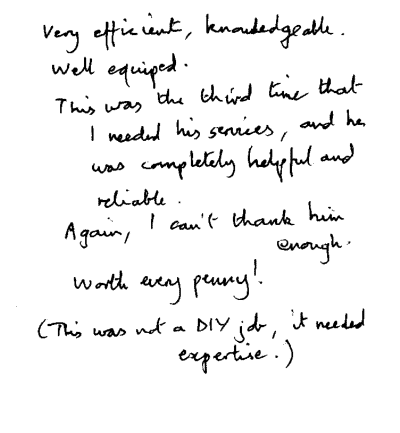 Very efficient, knowledgeable.
Well equiped.
This was the third time that
I needed his services, and he
was completely helpful and
reliable.
Again, I can't thank him
enough.
Worth every penny!
(This was not a DIY job, it needed
expertise.)